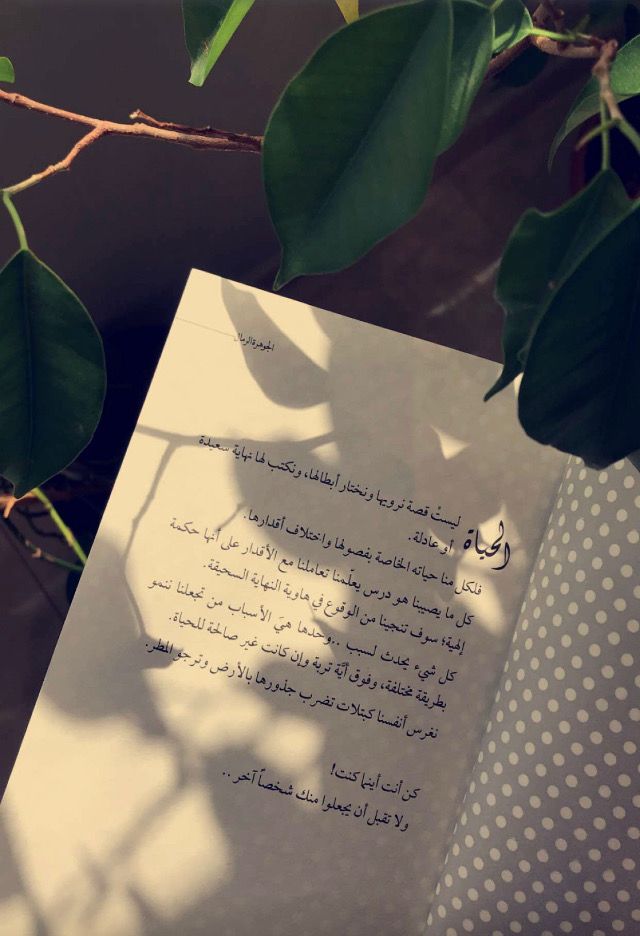 الجوهرة الرمال
الحياة ليستْ قصة نرويها ونختار أبطالها، ونكتب لها نهاية سعيدة
أو عادلة.
فلكل منا حياته الخاصة بفصولها واختلاف أقدارها.
كل ما يصيبنا هو درس يعلّمنا تعاملنا مع الأقدار على أنها حكمة
إلهية؛ سوف تنجينا من الوقوع في هاوية النهاية السحيقة.
كل شيء يحدث لسبب ..وحدها هيَ الأسباب من تجعلنا ننمو
بطريقة مختلفة، وفوق أيَّة تربة وإن كانت غير صالحة للحياة.
نغرس أنفسنا كبتلات تضرب جذورها بالأرض وترجو المطر.
كن أنت أينما كنت!
ولا تقبل أن يجعلوا منك شخصاً آخر ..